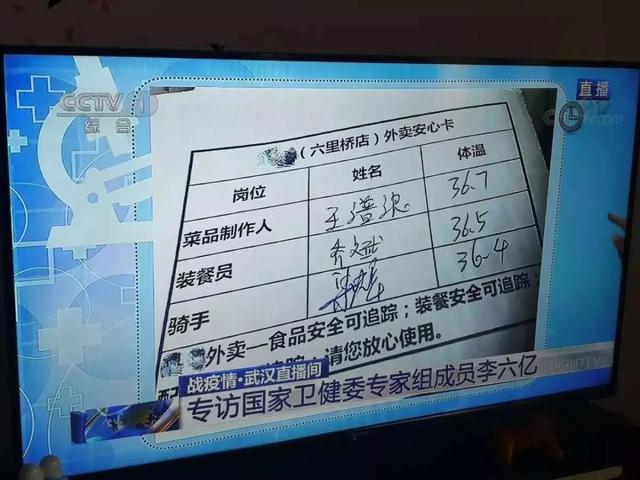 CCTV 1
综合
直播
（六里桥店）外卖安心卡
岗位 姓名 体温
菜品制作人 36.7
装餐员 36.5
骑手 36.4
外卖—食品安全可追踪；装餐安全可追踪；
请您放心使用。
战疫情·武汉直播间
专访国家卫健委专家组成员李六亿